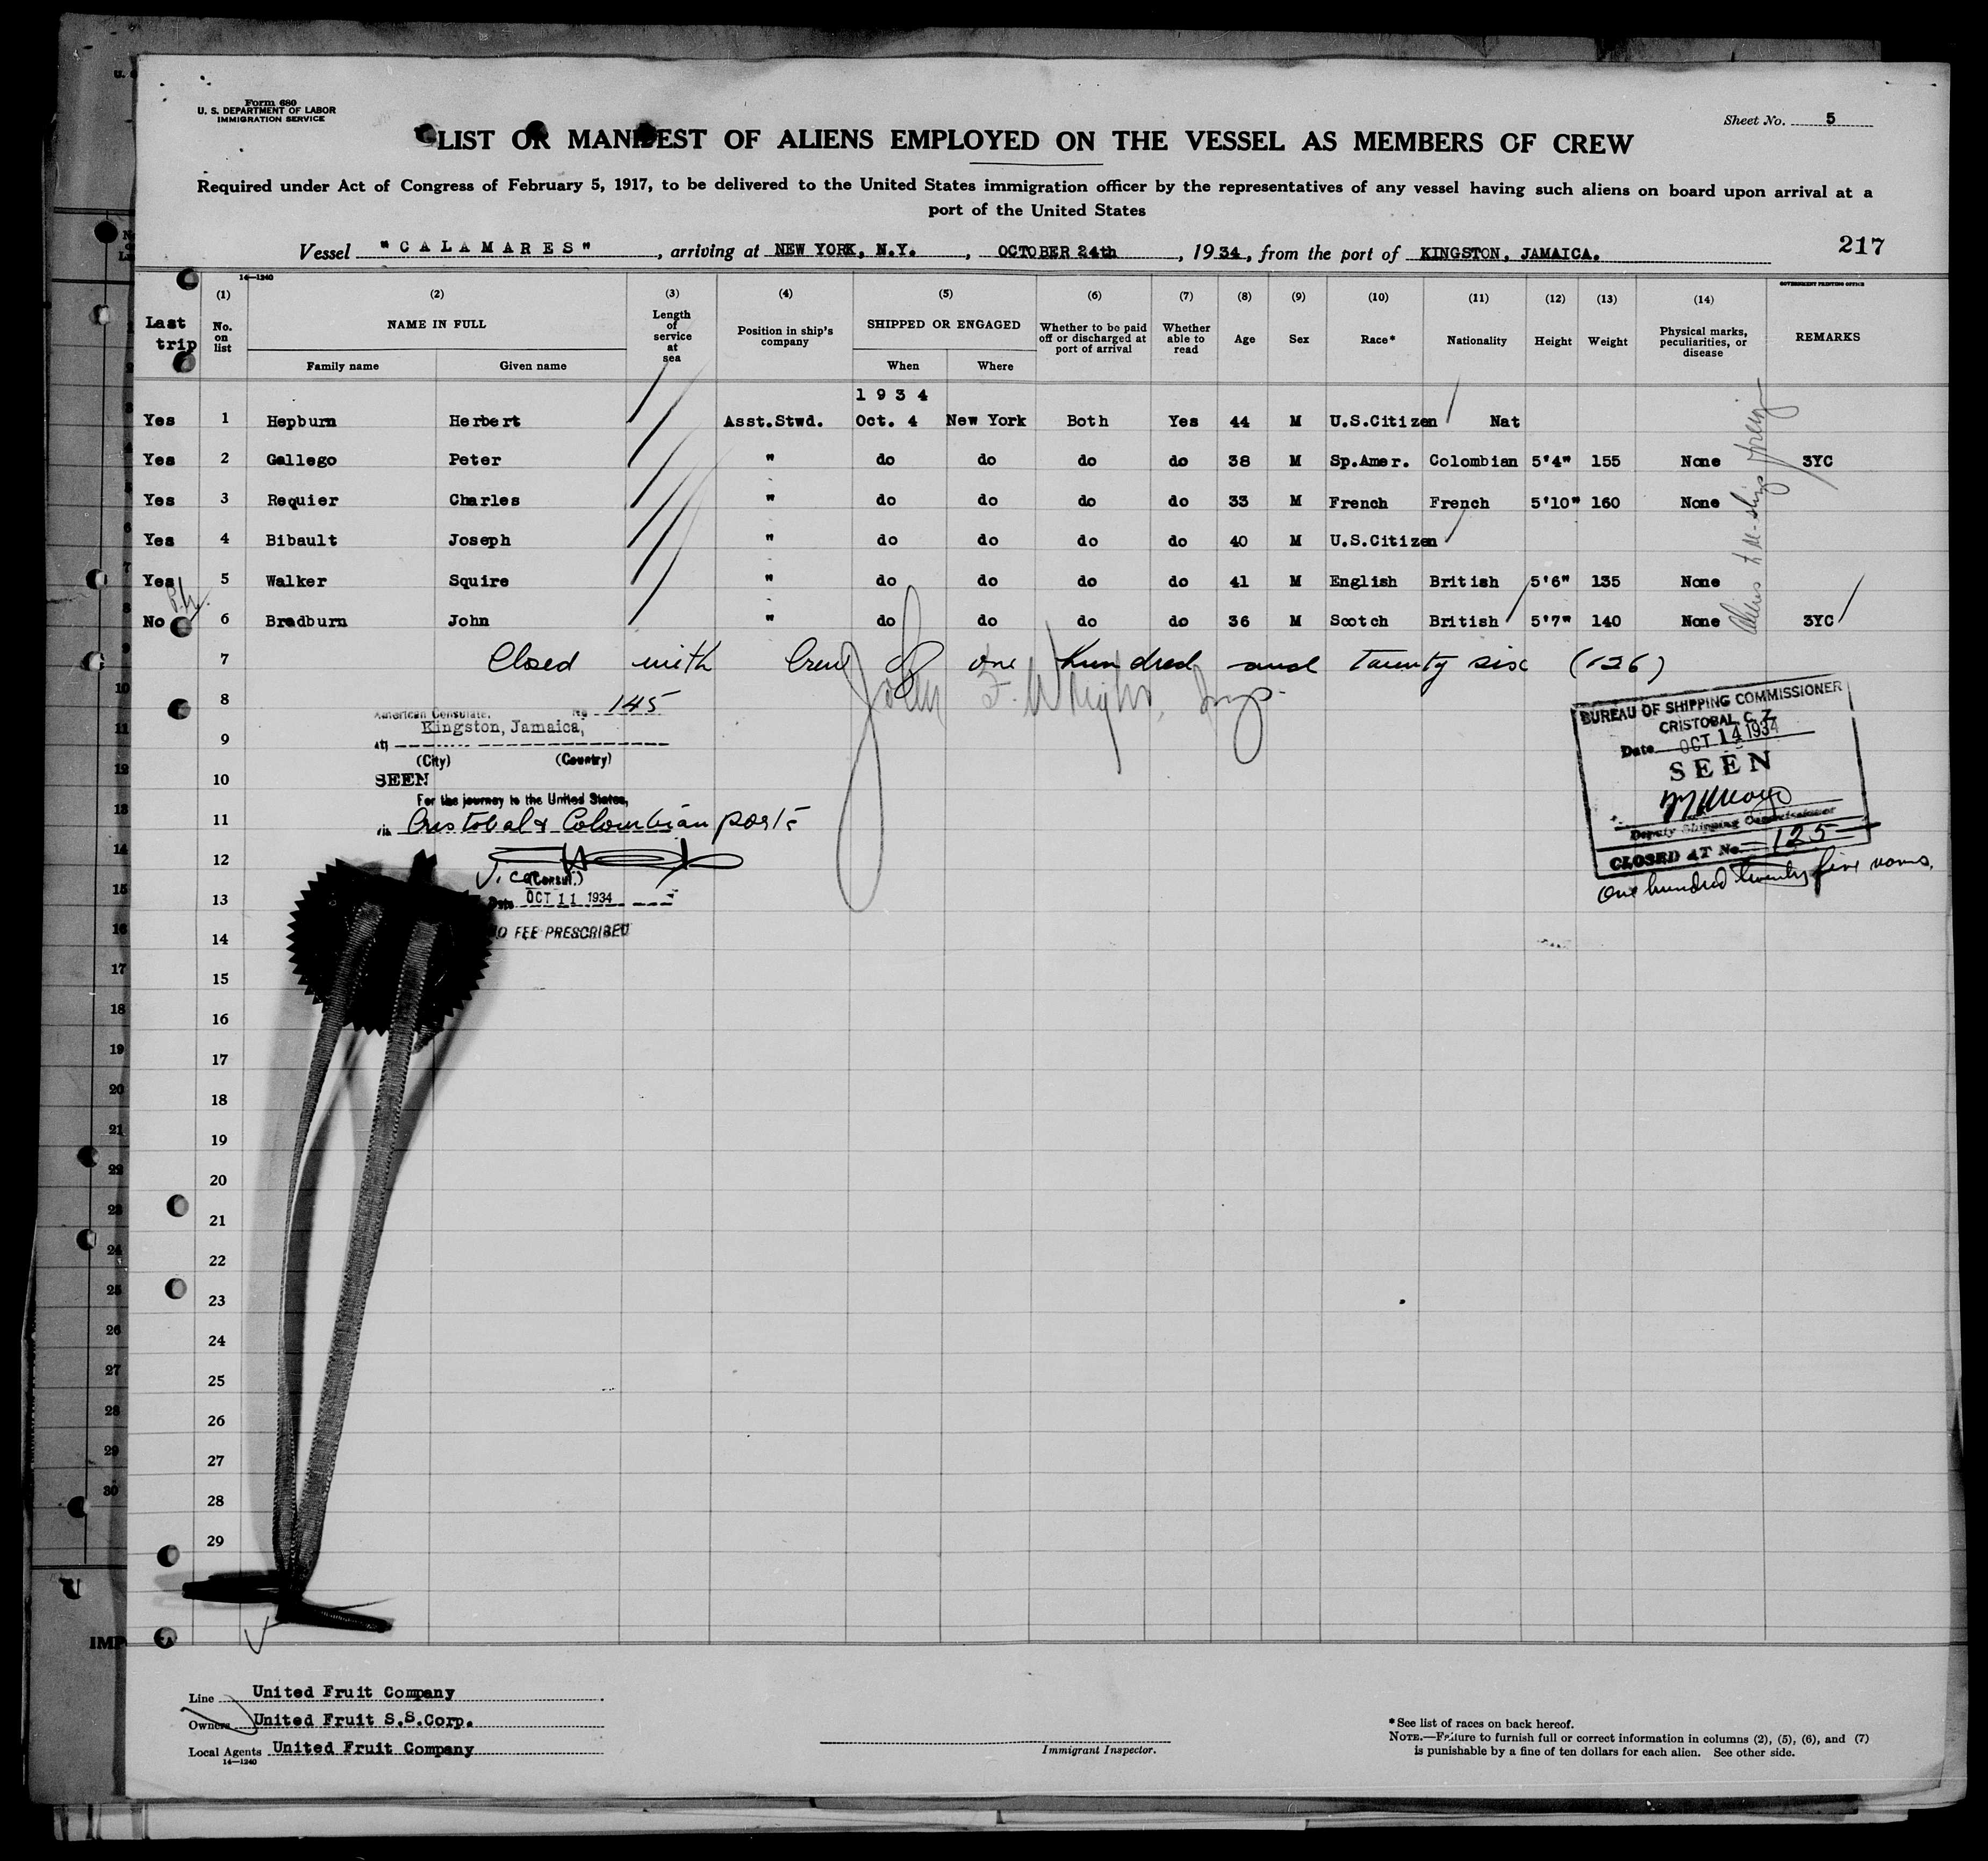 Form 680
U. S. DEPARTMENT OF LABOR
IMMIGRATION SERVICE
Sheet No. 5
LIST OR MANIFEST OF ALIENS EMPLOYED ON THE VESSEL AS MEMBERS OF CREW
Required under Act of Congress of February 5, 1917, to be delivered to the United States immigration officer by the representatives of any vessel having such aliens on board upon arrival at a
port of the United States
Vessel "CALAMARES", arriving at NEW YORK, N.Y., OCTOBER 24th, 1934, from the port of KINGSTON, JAMAICA.
217
14—1240
GOVERNMENT PRINTING OFFICE
(1) (2) (3) (4) (5) (6) (7) (8) (9) (10) (11) (12) (13) (14)
Last trip No. on list NAME IN FULL Length of service at sea Position in ship's company SHIPPED OR ENGAGED Whether to be paid off or discharged at port of arrival Whether able to read Age Sex Race* Nationality Height Weight Physical marks, peculiarities, or disease REMARKS
Family name Given name When Where
1934
Yes 1 Hepburn Herbert Asst.Stwd. Oct. 4 New York Both Yes 44 M U.S.Citizen Nat
Yes 2 Gallego Peter " do do do do 38 M Sp.Amer. Colombian 5'4" 155 None 3YC
Yes 3 Requier Charles " do do do do 33 M French French 5'10" 160 None
Yes 4 Bibault Joseph " do do do do 40 M U.S.Citizen
Yes 5 Walker Squire " do do do do 41 M English British 5'6" 135 None
No 6 Bradburn John " do do do do 36 M Scotch British 5'7" 140 None 3YC
7 Closed with Crew of one hundred and twenty six (126)
John F. Wright, Insp.
8
American Consulate, No 145
Kingston, Jamaica,
9 at
(City) (Country)
10 SEEN
For the journey to the United States,
11 via Cristobal & Colombian ports
12
Vice (Consul.)
13 Date OCT 11 1934
NO FEE PRESCRIBED
BUREAU OF SHIPPING COMMISSIONER
CRISTOBAL, C. Z.
Date OCT 14 1934
SEEN
Deputy Shipping Commissioner
CLOSED AT No. 125
One hundred twenty five
14
15
16
17
18
19
20
21
22
23
24
25
26
27
28
29
Line United Fruit Company
Owners United Fruit S.S.Corp.
Local Agents United Fruit Company
14—1240
Immigrant Inspector.
*See list of races on back hereof.
NOTE.—Failure to furnish full or correct information in columns (2), (5), (6), and (7)
is punishable by a fine of ten dollars for each alien. See other side.